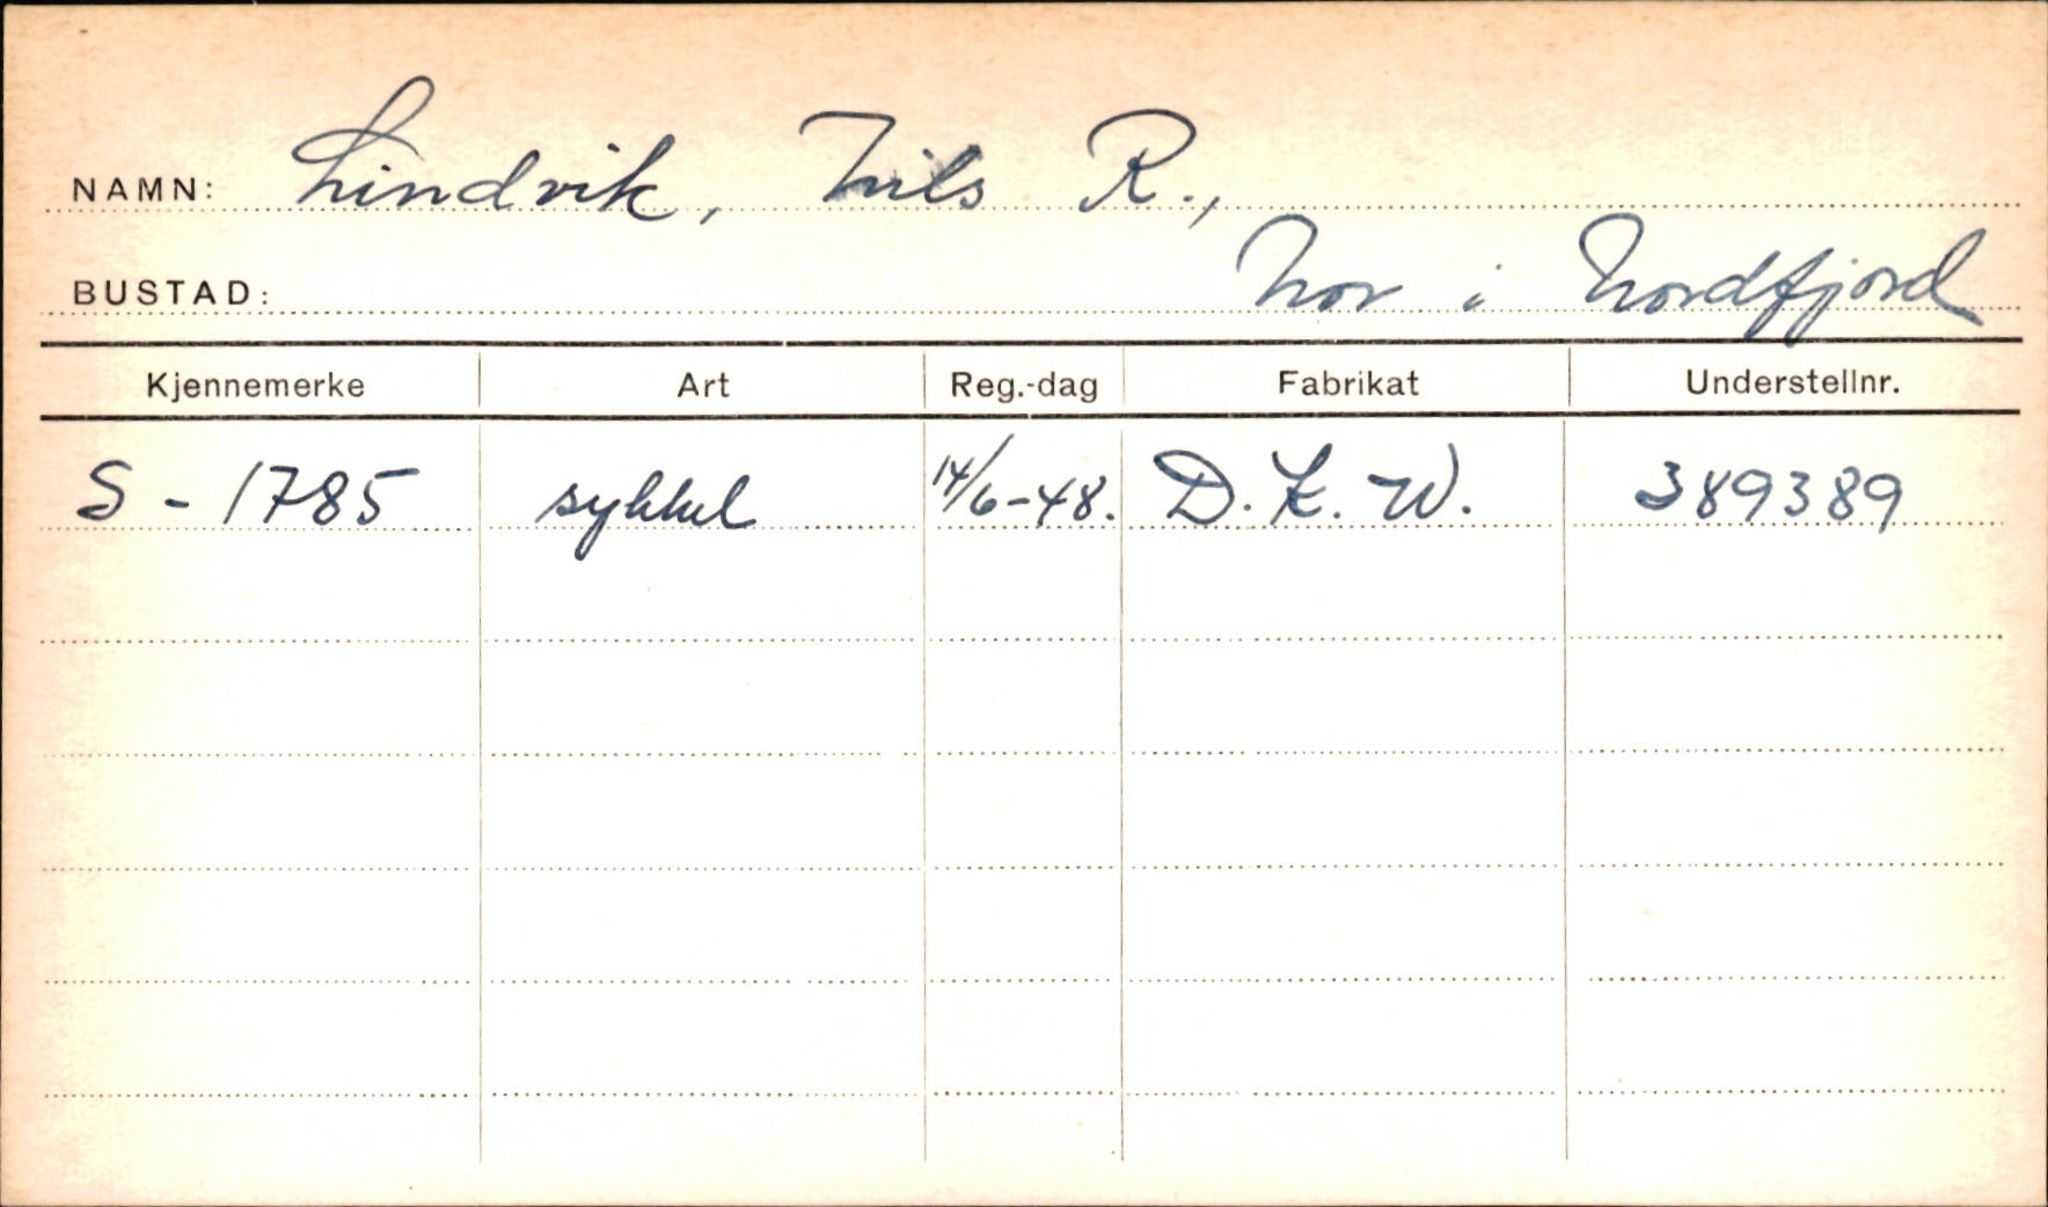 NAMN: Lindvik, Nils R.,
BUSTAD: Nor i Nordfjord
Kjennemerke Art Reg.-dag Fabrikat Understellnr.
S - 1785 sykkel 14/6-48. D.K.W. 389389